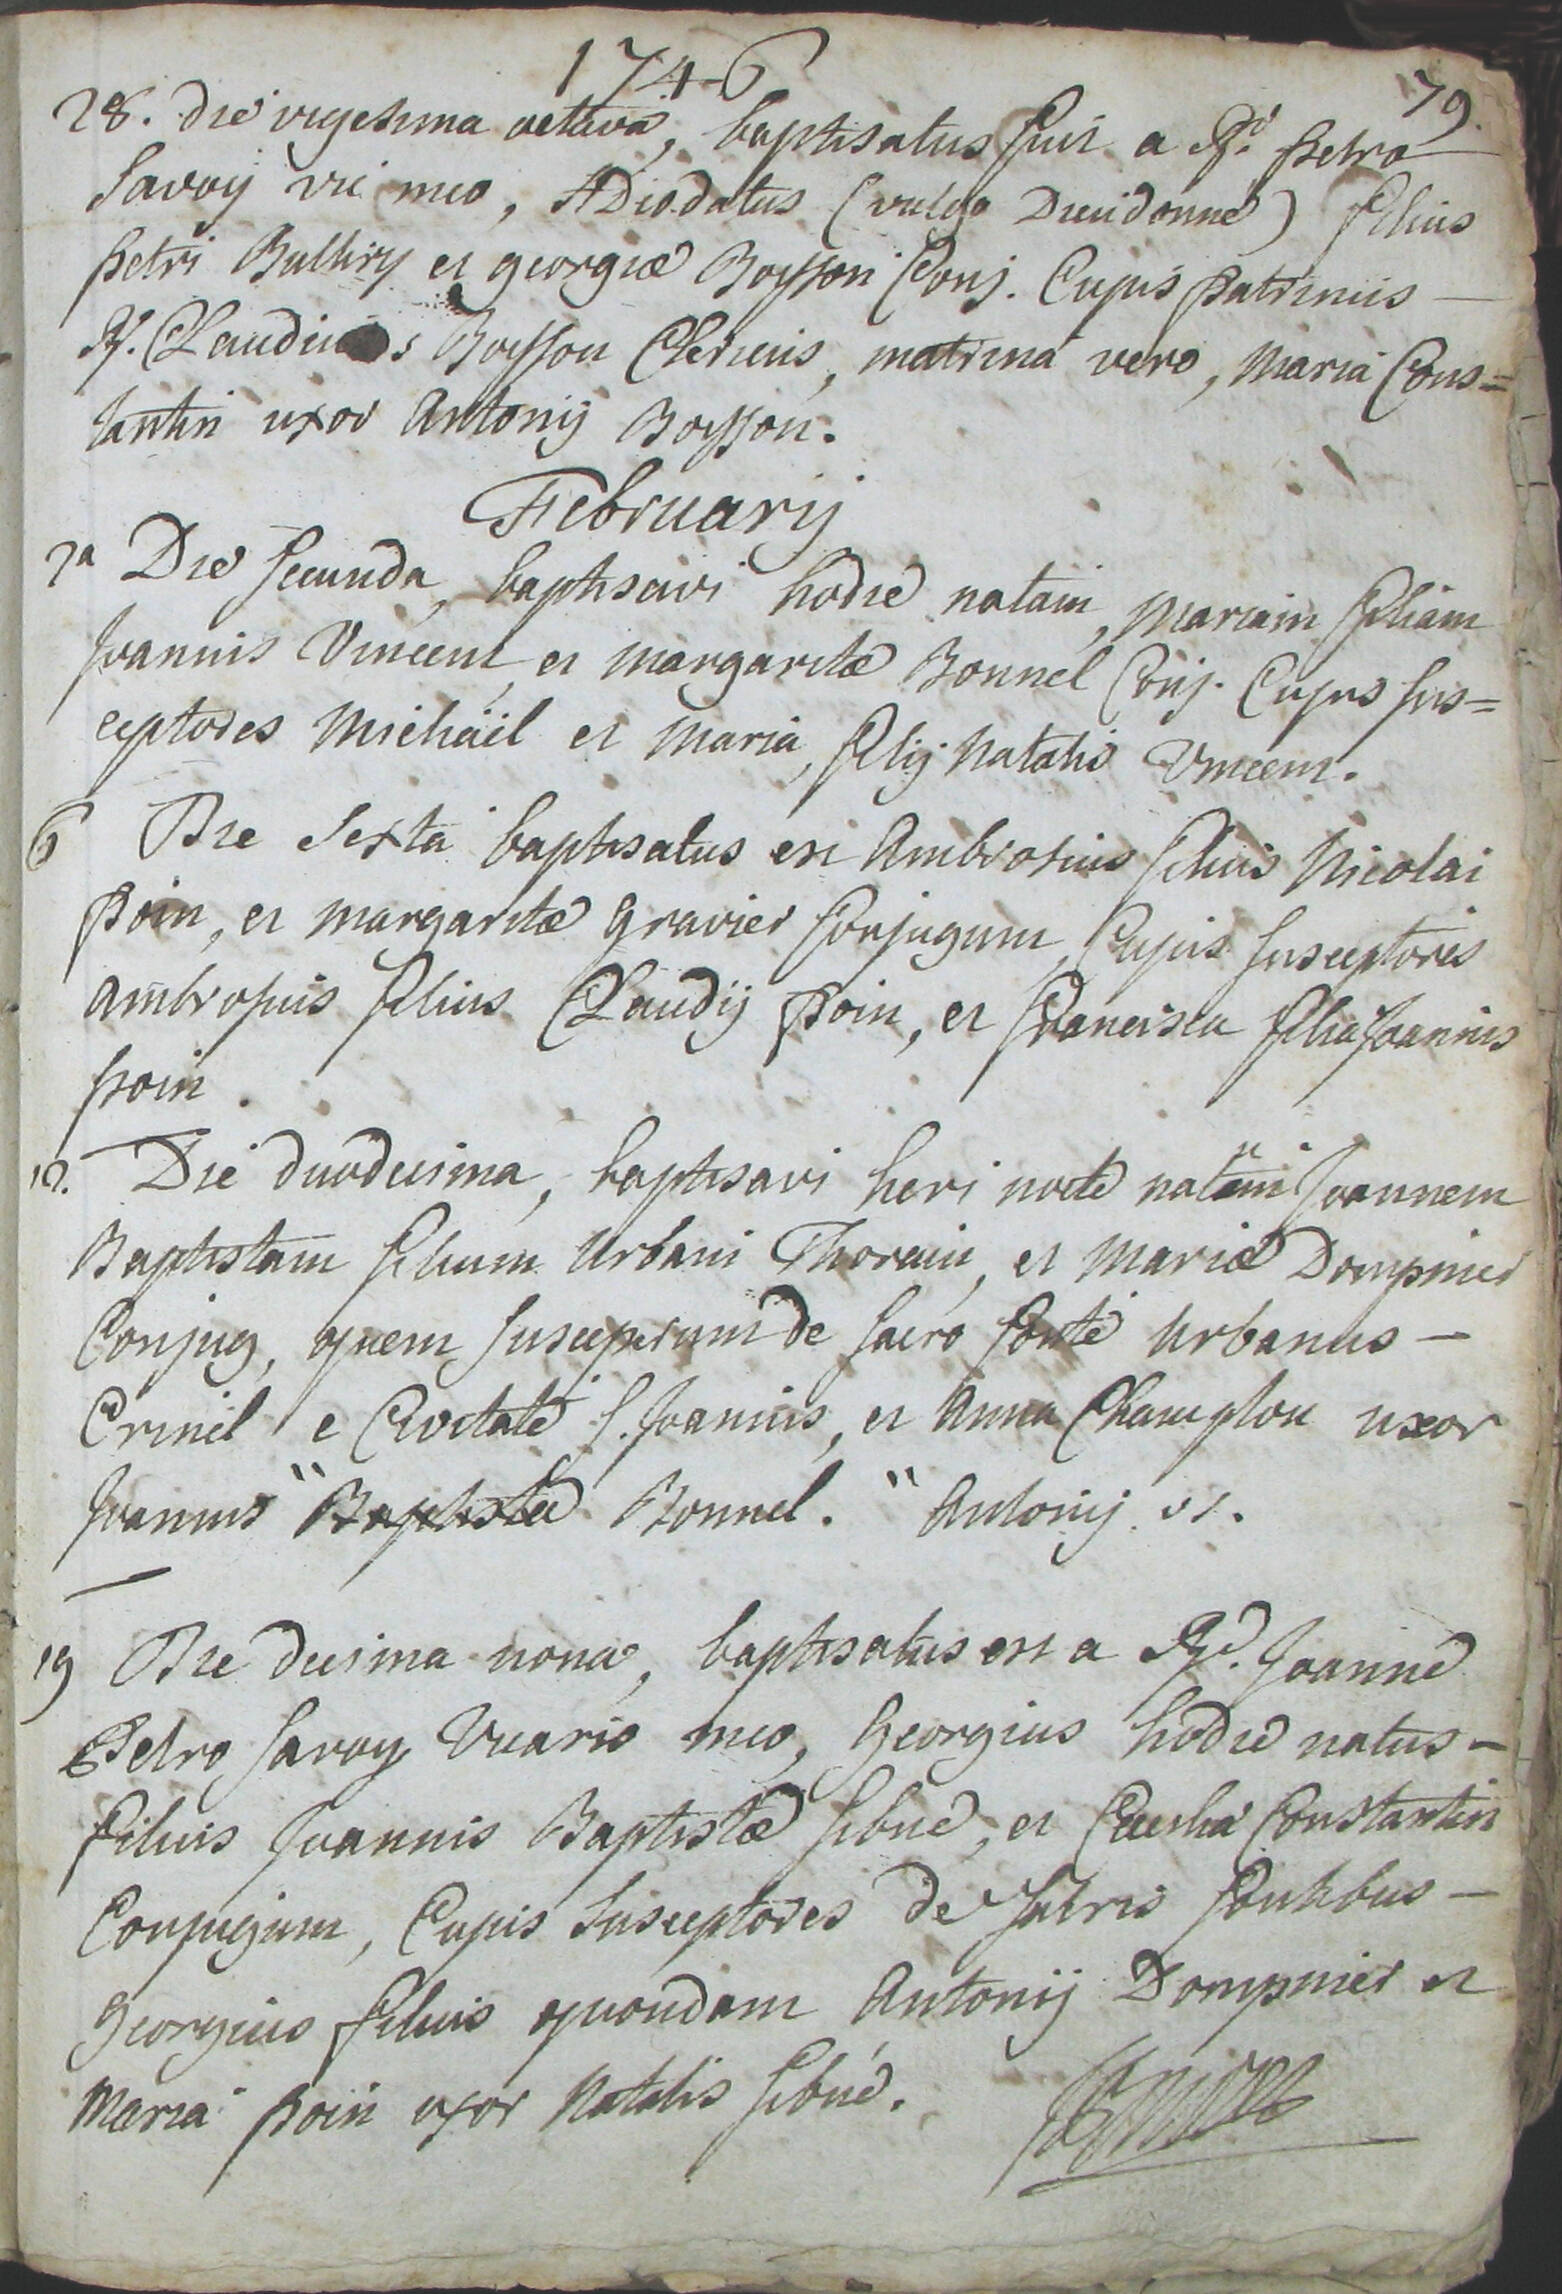 1746
79.
28. die vigesima octava, baptisatus fuit a Rd. petro
Savoy vic meo, ADiodatus (vulgo Dieudonné) filius
petri Bulliry et georgiæ Boysson Conj. Cujus patrinus —
R. Claudius Boysson Clericus, matrina vero, Maria Cons=
tantin uxor Antonij Boysson.
Februarij
2a Die secunda, baptisavi hodie natam, Mariam filiam
Joannis Vincent, et margaritæ Bonnel Conj. Cujus sus=
ceptores Michäel et Maria, filij Natalis Vincent.
6 Die Sexta baptisatus est Ambrosius filius Nicolai
poin, et margaritæ gravier Conjugum, Cujus susceptores
Ambrosius filius Claudij poin, et francisca filia Joannis
poin.
12. Die duodecima, baptisavi heri nocte natum Joannem
Baptistam filium Urbani Thorain, et Mariæ Dompnier
Conjug, quem susceperunt de sacro fonte Urbanus —
Crinel e Civitate S. Joannis, et Anna Champlon uxor
Joannis " Baptistæ Bonnel. " Antonij st.
19 Die decima nona, baptisatus est a Rd. Joanne
petro Savoy Vicario meo, Georgius hodie natus —
filius Joannis Baptistæ sibué, et Cæcilia Constantin
Conjugum, Cujus susceptores de sacris fontibus —
Georgius filius quondam Antonij Dompnier et
Maria poin uxor Natalis sibué.